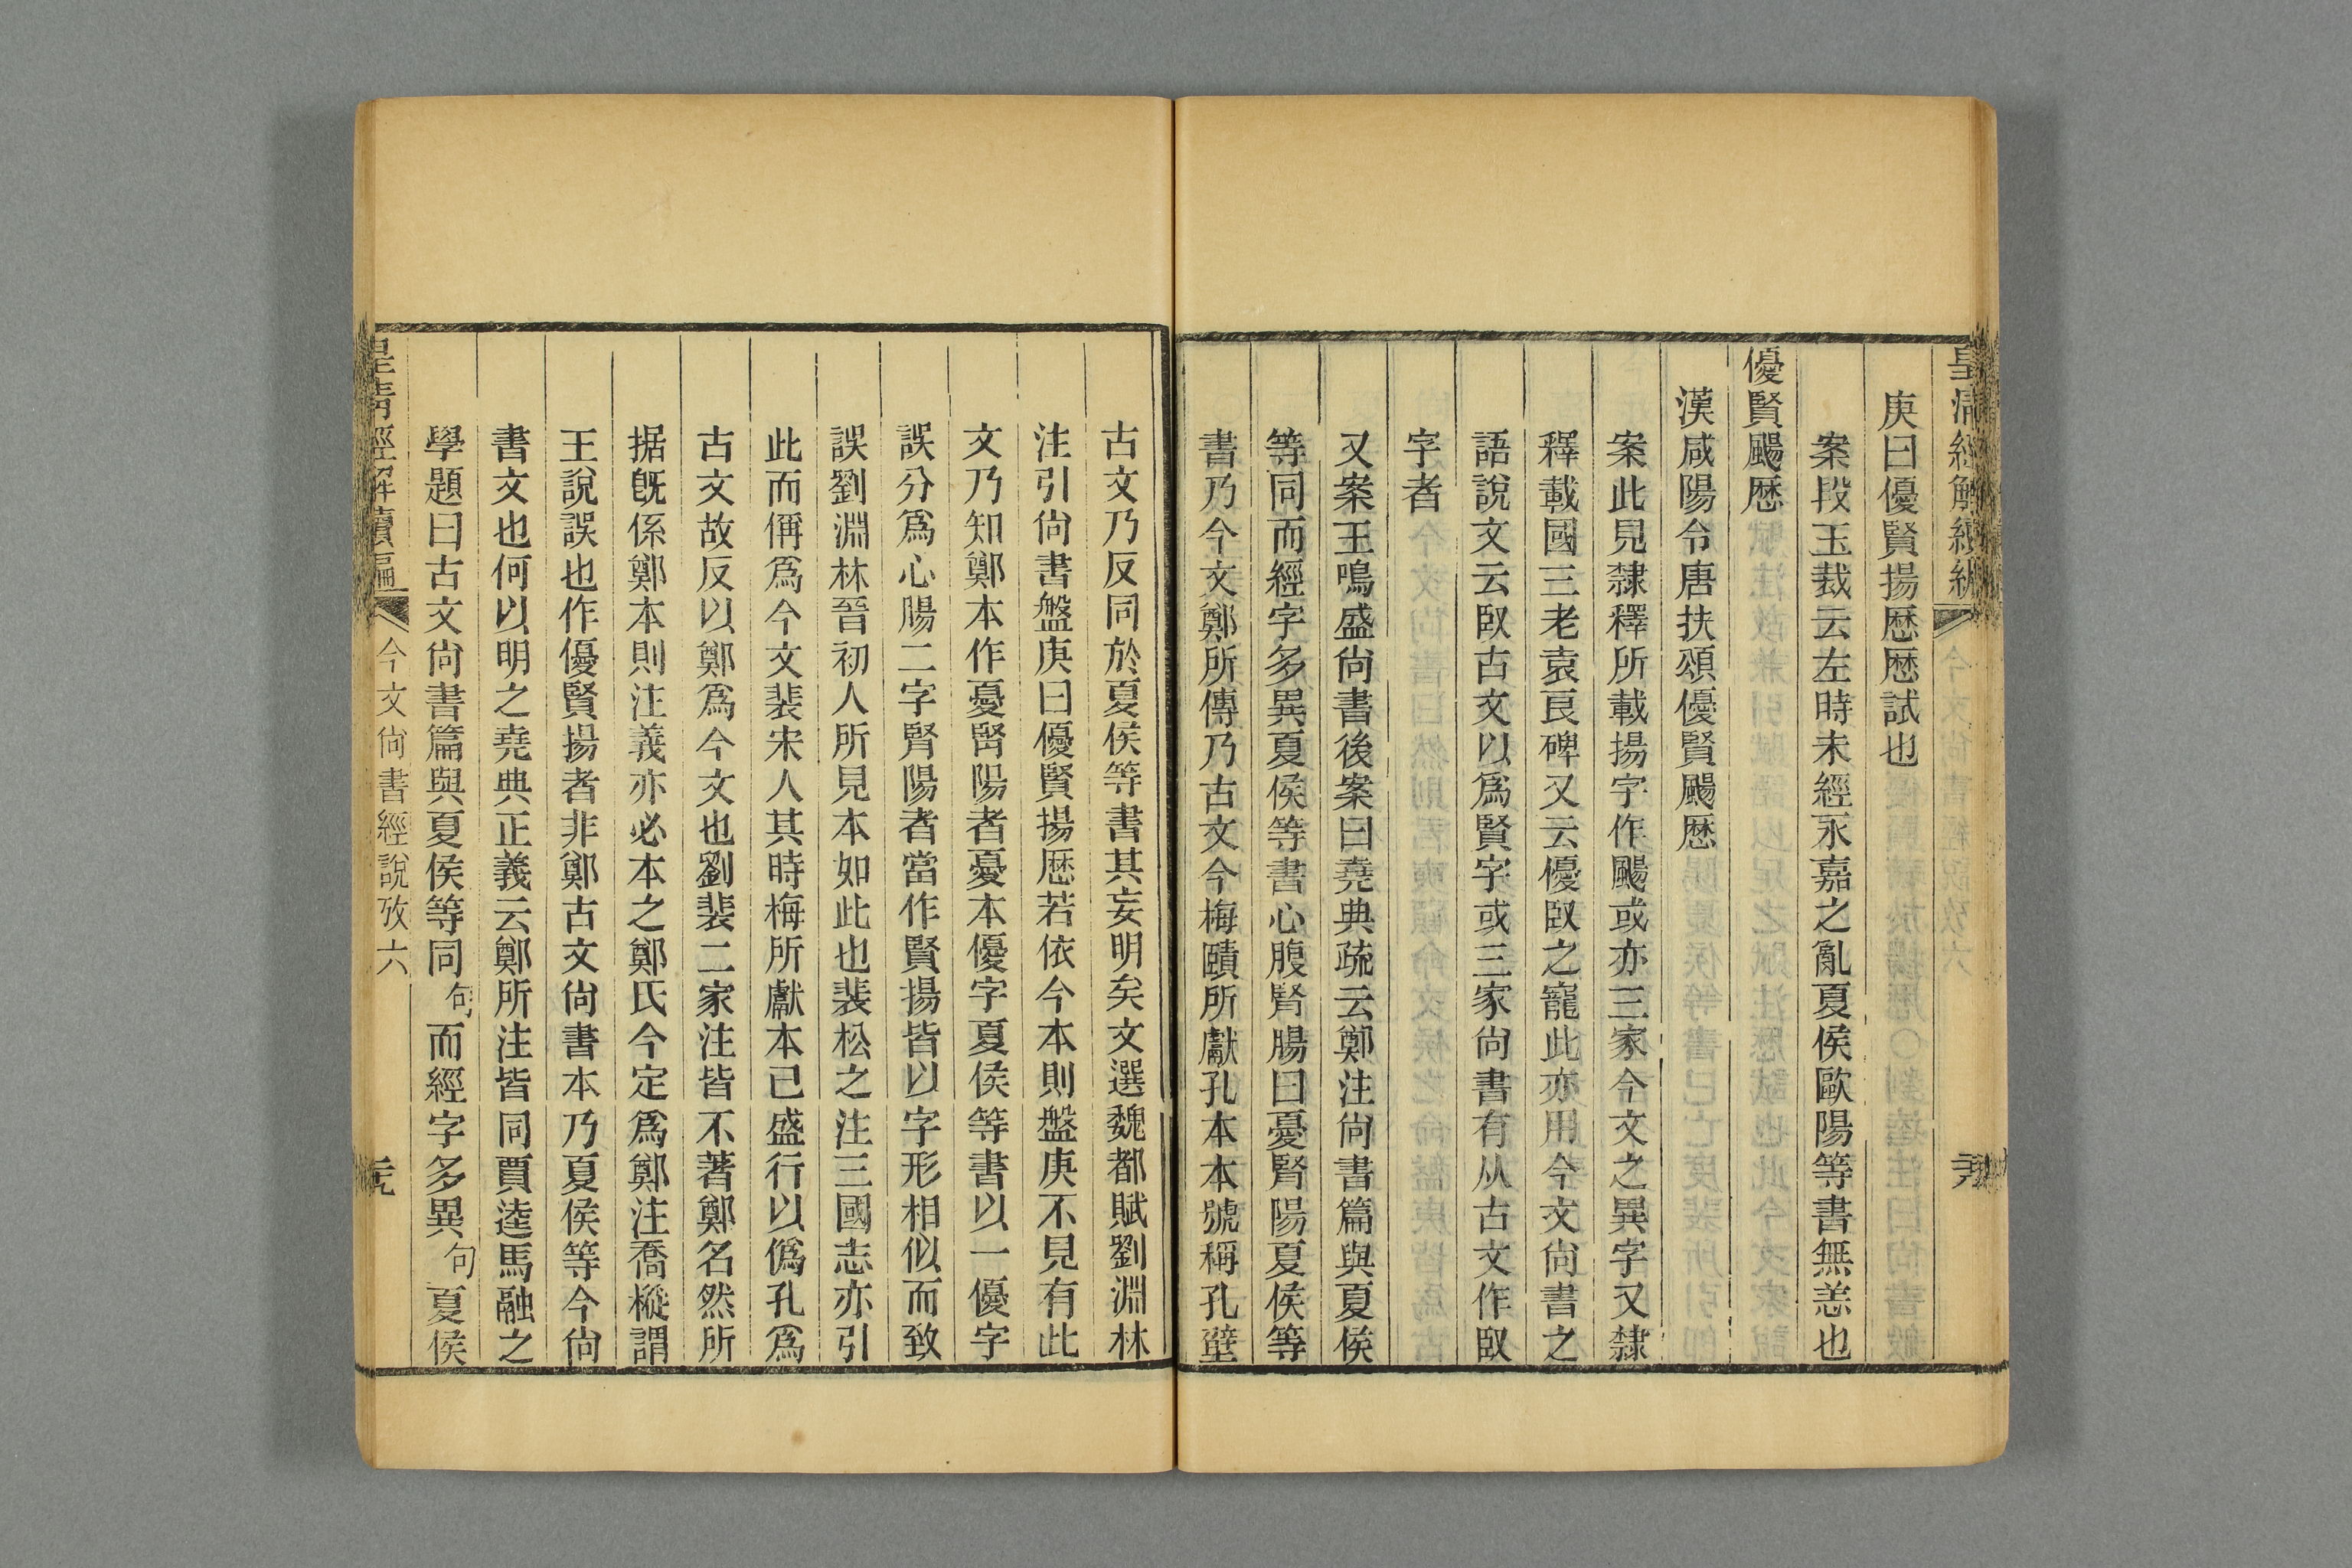 皇清經解續編
庚曰優賢揚歷歷試也
案段玉裁云左時未經永嘉之亂夏侯歐陽等書無恙也
優賢颺歷
漢咸陽令唐扶頌優賢颺歷
案此見隸釋所載揚字作颺或亦三家今文之異字又隸
釋載國三老袁良碑又云優臤之寵此亦用今文尙書之
語說文云臤古文以爲賢字或三家尙書有从古文作臤
字者
又案王鳴盛尙書後案曰堯典疏云鄭注尙書篇與夏侯
等同而經字多異夏侯等書心腹腎腸曰憂腎陽夏侯等
書乃今文鄭所傳乃古文今梅賾所獻孔本本號稱孔壁
古文乃反同於夏侯等書其妄明矣文選魏都賦劉淵林
注引尙書盤庚曰優賢揚歷若依今本則盤庚不見有此
文乃知鄭本作憂腎陽者憂本優字夏侯等書以一優字
誤分爲心腸二字腎陽者當作賢揚皆以字形相似而致
誤劉淵林晉初人所見本如此也裴松之注三國志亦引
此而偁爲今文裴宋人其時梅所獻本已盛行以僞孔爲
古文故反以鄭爲今文也劉裴二家注皆不著鄭名然所
据旣係鄭本則注義亦必本之鄭氏今定爲鄭注喬樅謂
王說誤也作優賢揚者非鄭古文尙書本乃夏侯等今尙
書文也何以明之堯典正義云鄭所注皆同賈逵馬融之
學題曰古文尙書篇與夏侯等同句而經字多異句夏侯
皇清經解續編 今文尙書經說攷六 元